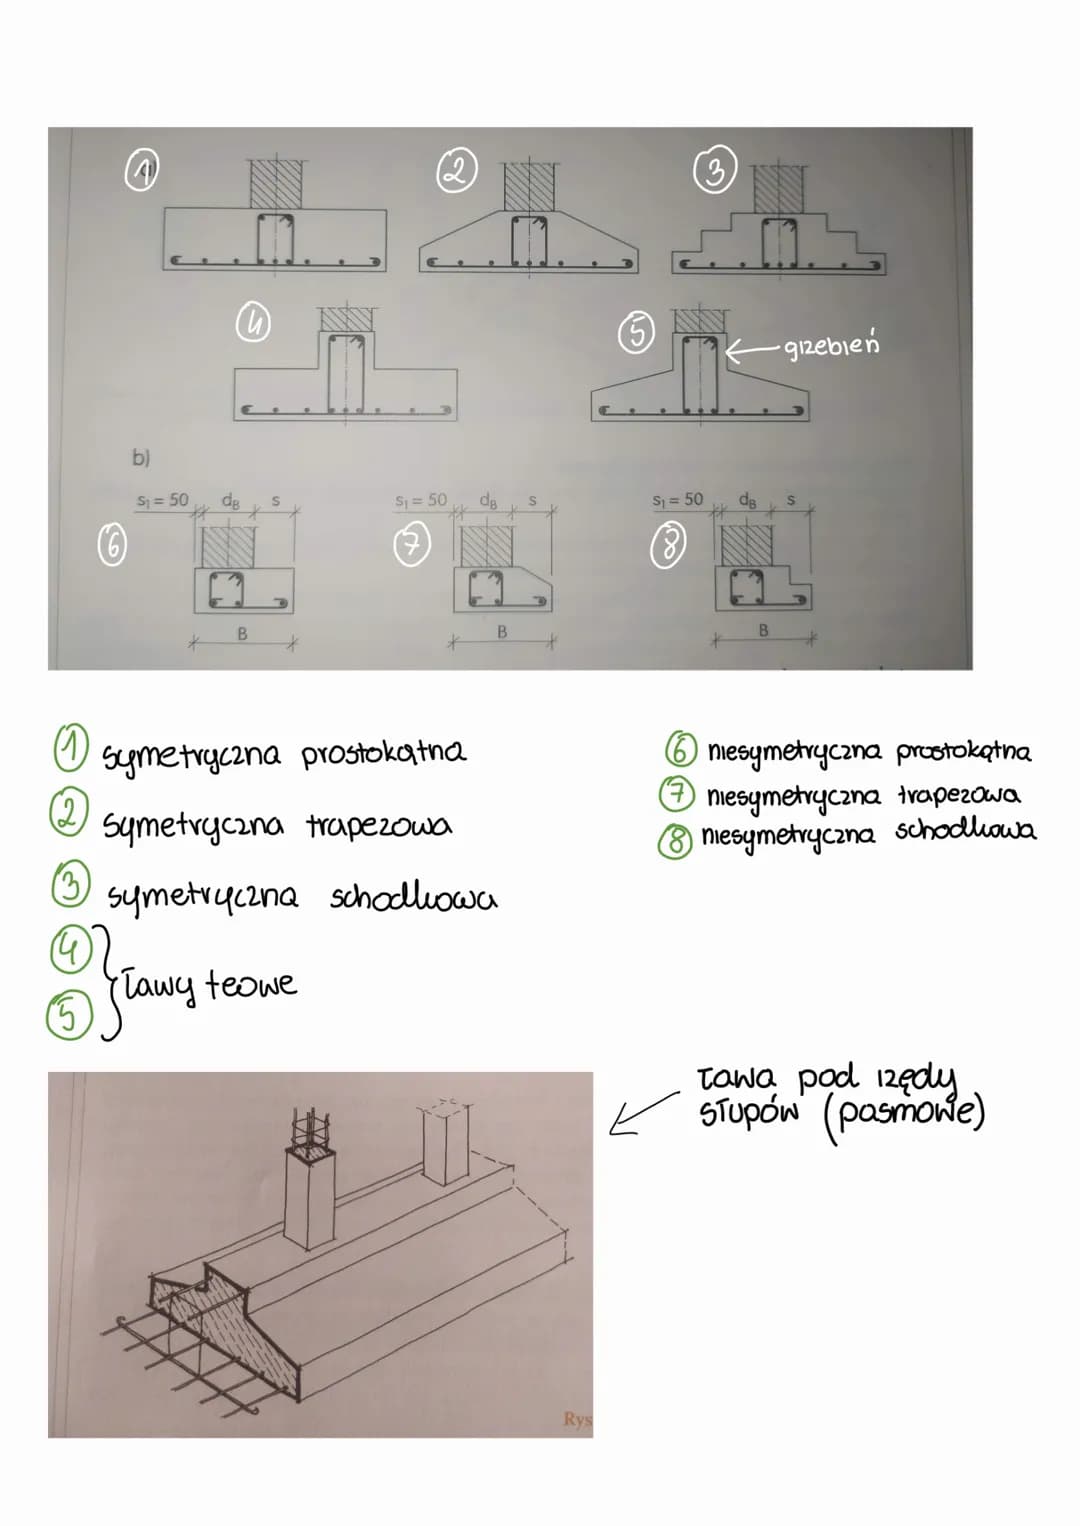 1
2
3
4
5
grzebień
b)
s₁ = 50 dB s
s₁ = 50 dB s
s₁ = 50 dB s
6
7
8
B
B
B
1 symetryczna prostokątna
2 symetryczna trapezowa
3 symetryczna schodkowa
4
5
ławy teowe
6 niesymetryczna prostokątna
7 niesymetryczna trapezowa
8 niesymetryczna schodkowa
ława pod rzędy
słupów (pasmowe)
Rys